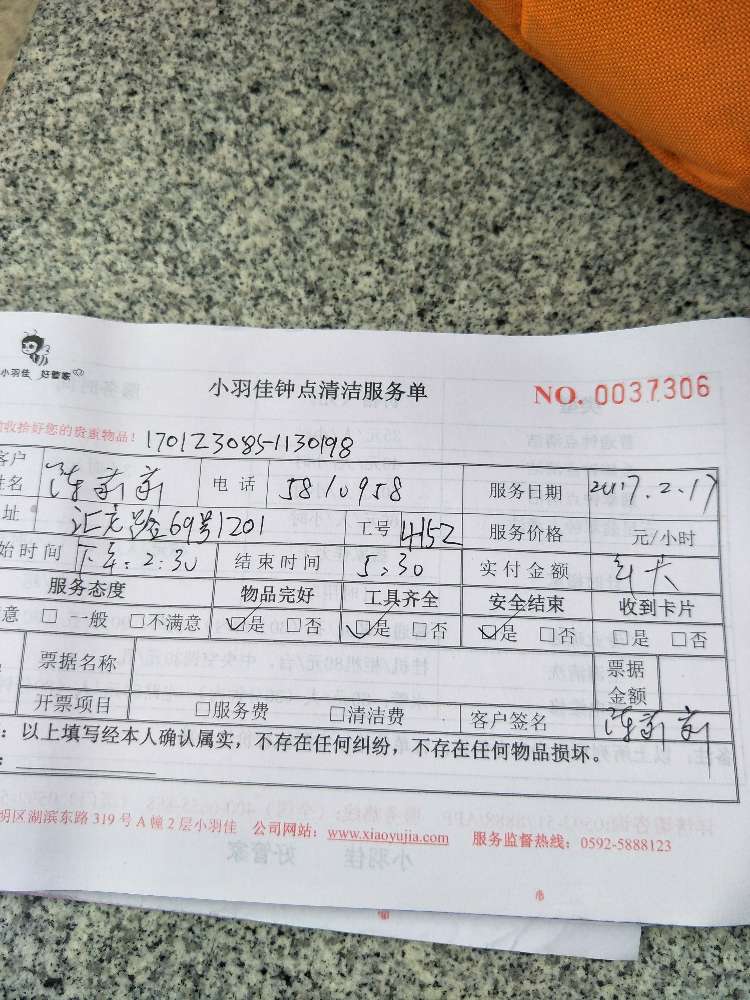 小羽佳 好管家
小羽佳钟点清洁服务单 NO. 0037306
收拾好您的贵重物品! 170123085-1130198
客户姓名 电话 5810958 服务日期 2017.2.17
址 69号1201 工号 4152 服务价格 元/小时
始时间 下午:2:30 结束时间 5:30 实付金额 年卡
服务态度 物品完好 工具齐全 安全结束 收到卡片
意 □一般 □不满意 ☑是 □否 ☑是 □否 ☑是 □否 □是 □否
票据名称 票据金额
开票项目 □服务费 □清洁费 客户签名
: 以上填写经本人确认属实,不存在任何纠纷,不存在任何物品损坏。
明区湖滨东路 319 号 A 幢 2 层小羽佳 公司网站: www.xiaoyujia.com 服务监督热线: 0592-5888123